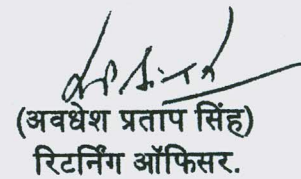 (अवधेश प्रताप सिंह)
रिटर्निंग ऑफिसर.